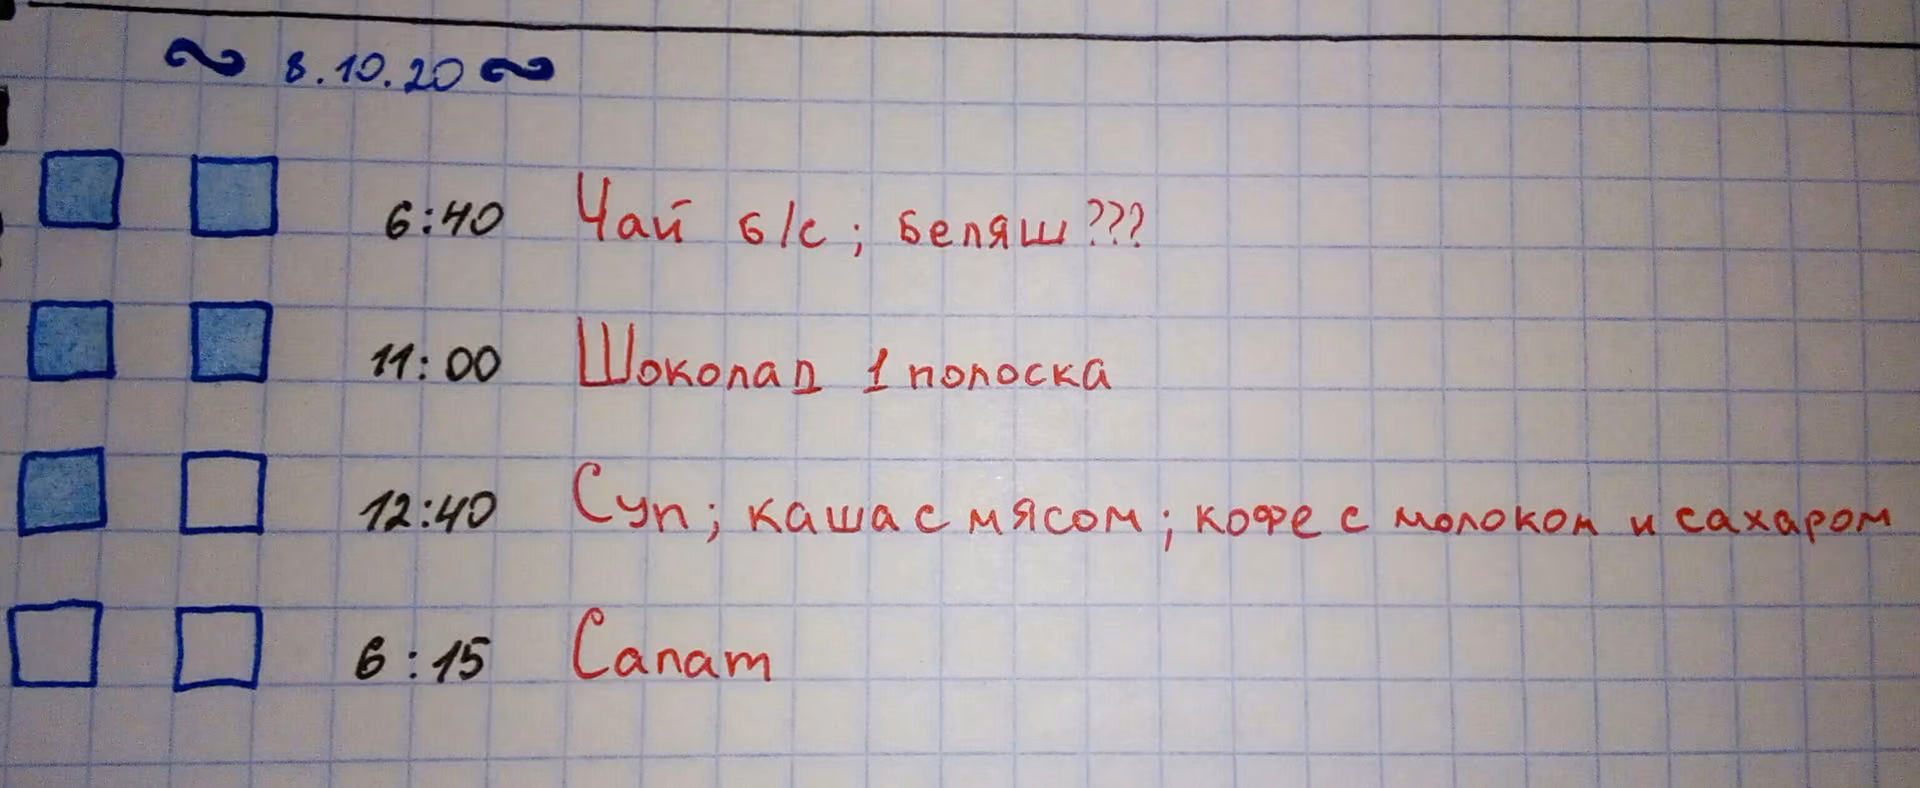 ~ 8.10.20 ~
6:40 Чай б/с; беляш???
11:00 Шоколад 1 полоска
12:40 Суп; каша с мясом; кофе с молоком и сахаром
6:15 Салат